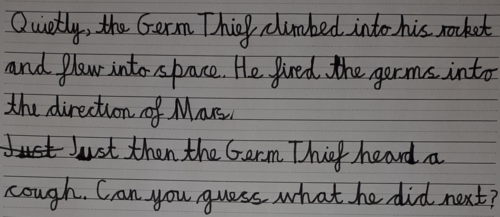 Quietly, the Germ Thief climbed into his rocket
and flew into space. He fired the germs into
the direction of Mars.
Just Just then the Germ Thief heard a
cough. Can you guess what he did next?